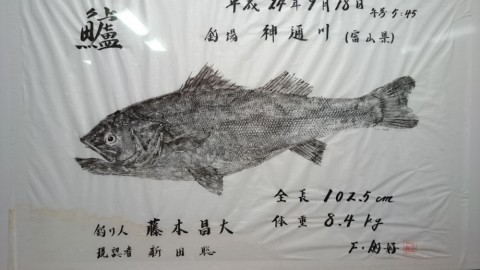 鱸
平成24年9月18日 午前5:45
釣場 神通川 (富山県)
全長 102.5cm
体重 8.4kg
釣り人 藤本昌大
現認者 新田聡